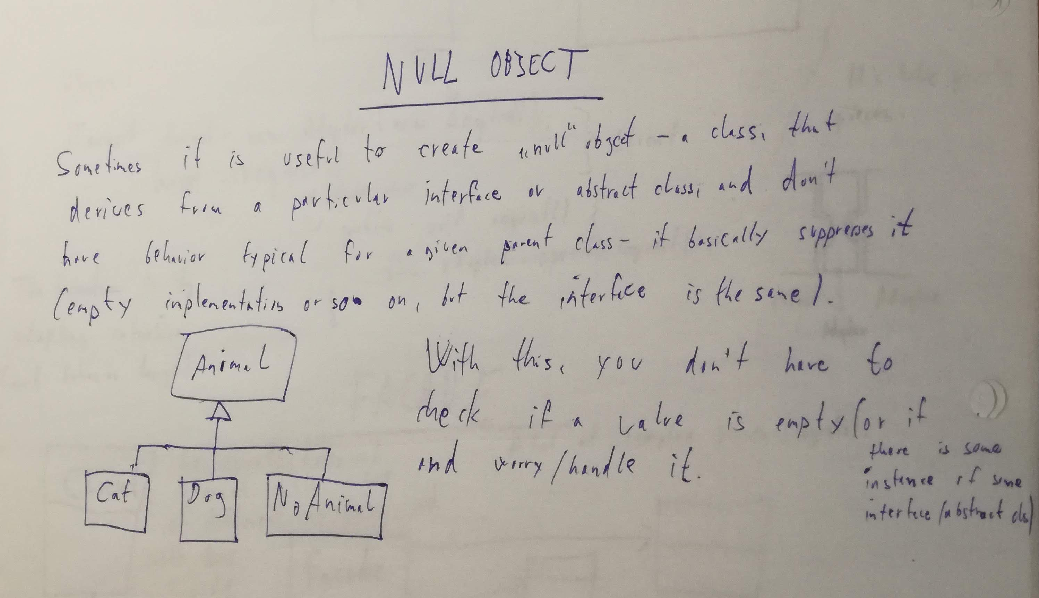 NULL OBJECT
Sometimes it is useful to create „null" object – a class, that
derives from a particular interface or abstract class, and don't
have behavior typical for a given parent class – it basically suppresses it
(empty implementation or so on, but the interface is the same).
Animal
Cat
Dog
No Animal
With this, you don't have to
check if a value is empty (or if
there is some
instance of some
interface/abstract cls)
and worry/handle it.